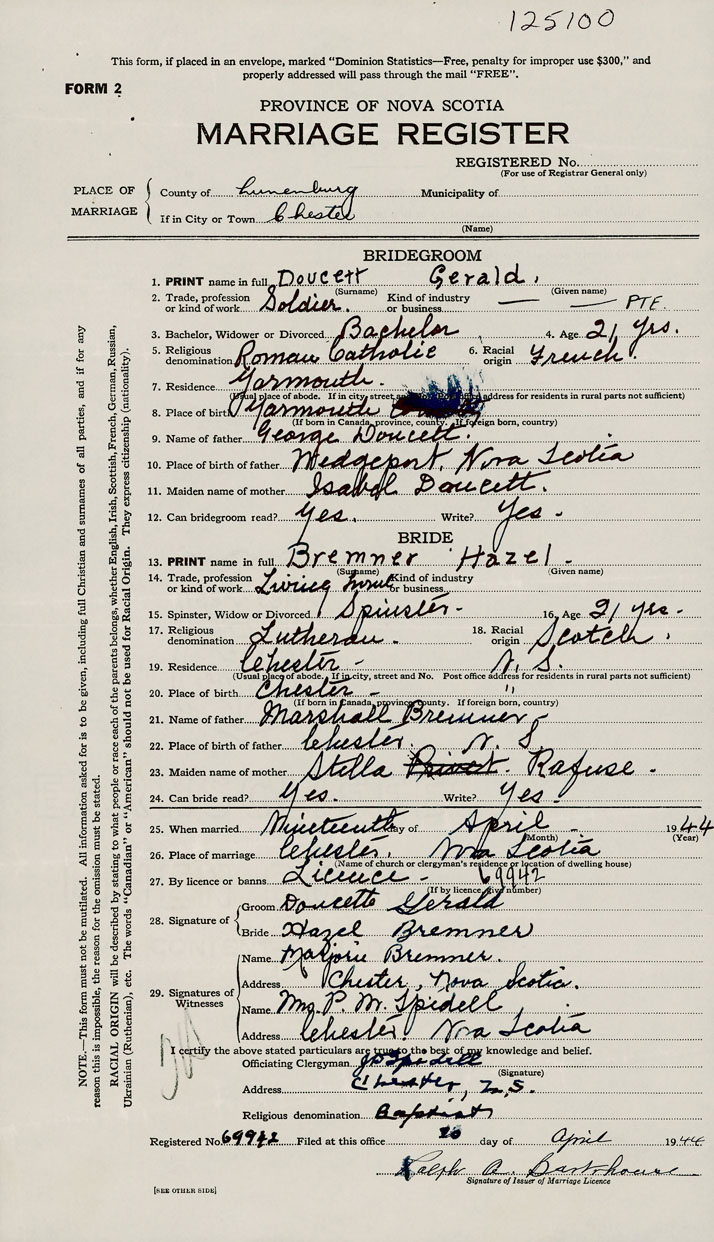 125100
This form, if placed in an envelope, marked "Dominion Statistics—Free, penalty for improper use $300," and
properly addressed will pass through the mail "FREE".
FORM 2
PROVINCE OF NOVA SCOTIA
MARRIAGE REGISTER
REGISTERED No.
(For use of Registrar General only)
PLACE OF MARRIAGE
County of Lunenburg Municipality of
If in City or Town Chester
(Name)
BRIDEGROOM
1. PRINT name in full Doucett Gerald.
(Surname) (Given name)
2. Trade, profession or kind of work Soldier. Kind of industry or business — — PTE.
3. Bachelor, Widower or Divorced Bachelor 4. Age 21 yrs.
5. Religious denomination Roman Catholic 6. Racial origin French.
7. Residence Yarmouth.
(Usual place of abode. If in city, street and No. Post office address for residents in rural parts not sufficient)
8. Place of birth Yarmouth
(If born in Canada, province, county. If foreign born, country)
9. Name of father George Doucett.
10. Place of birth of father Wedgeport, Nova Scotia
11. Maiden name of mother Isabel Doucett.
12. Can bridegroom read? Yes. Write? Yes -
BRIDE
13. PRINT name in full Bremner Hazel -
(Surname) (Given name)
14. Trade, profession or kind of work Living Kind of industry or business
15. Spinster, Widow or Divorced Spinster - 16. Age 21 yrs -
17. Religious denomination Lutheran. 18. Racial origin Scotch.
19. Residence Chester - N. S.
(Usual place of abode. If in city, street and No. Post office address for residents in rural parts not sufficient)
20. Place of birth Chester - "
(If born in Canada, province, county. If foreign born, country)
21. Name of father Marshall Bremner -
22. Place of birth of father Chester. N. S
23. Maiden name of mother Stella Rafuse -
24. Can bride read? Yes. Write? Yes -
25. When married Nineteenth day of April - 1944
(Month) (Year)
26. Place of marriage Chester. Nova Scotia
(Name of church or clergyman's residence or location of dwelling house)
27. By licence or banns Licence - 69942
(If by licence, give number)
28. Signature of
Groom Doucette Gerald
Bride Hazel Bremner
29. Signatures of Witnesses
Name Marjorie Bremner.
Address Chester, Nova Scotia.
Name Mrs. P. M. Spidell
Address Chester. Nova Scotia
I certify the above stated particulars are true to the best of my knowledge and belief.
Officiating Clergyman Spidell
(Signature)
Address Chester, N.S.
Religious denomination Baptist
Registered No. 69942 Filed at this office 20 day of April 1944
Ralph A. Barkhouse
Signature of Issuer of Marriage Licence
[SEE OTHER SIDE]
NOTE.—This form must not be mutilated. All information asked for is to be given, including full Christian and surnames of all parties, and if for any
reason this is impossible, the reason for the omission must be stated.
RACIAL ORIGIN will be described by stating to what people or race each of the parents belongs, whether English, Irish, Scottish, French, German, Russian,
Ukrainian (Ruthenian), etc. The words "Canadian" or "American" should not be used for Racial Origin. They express citizenship (nationality).